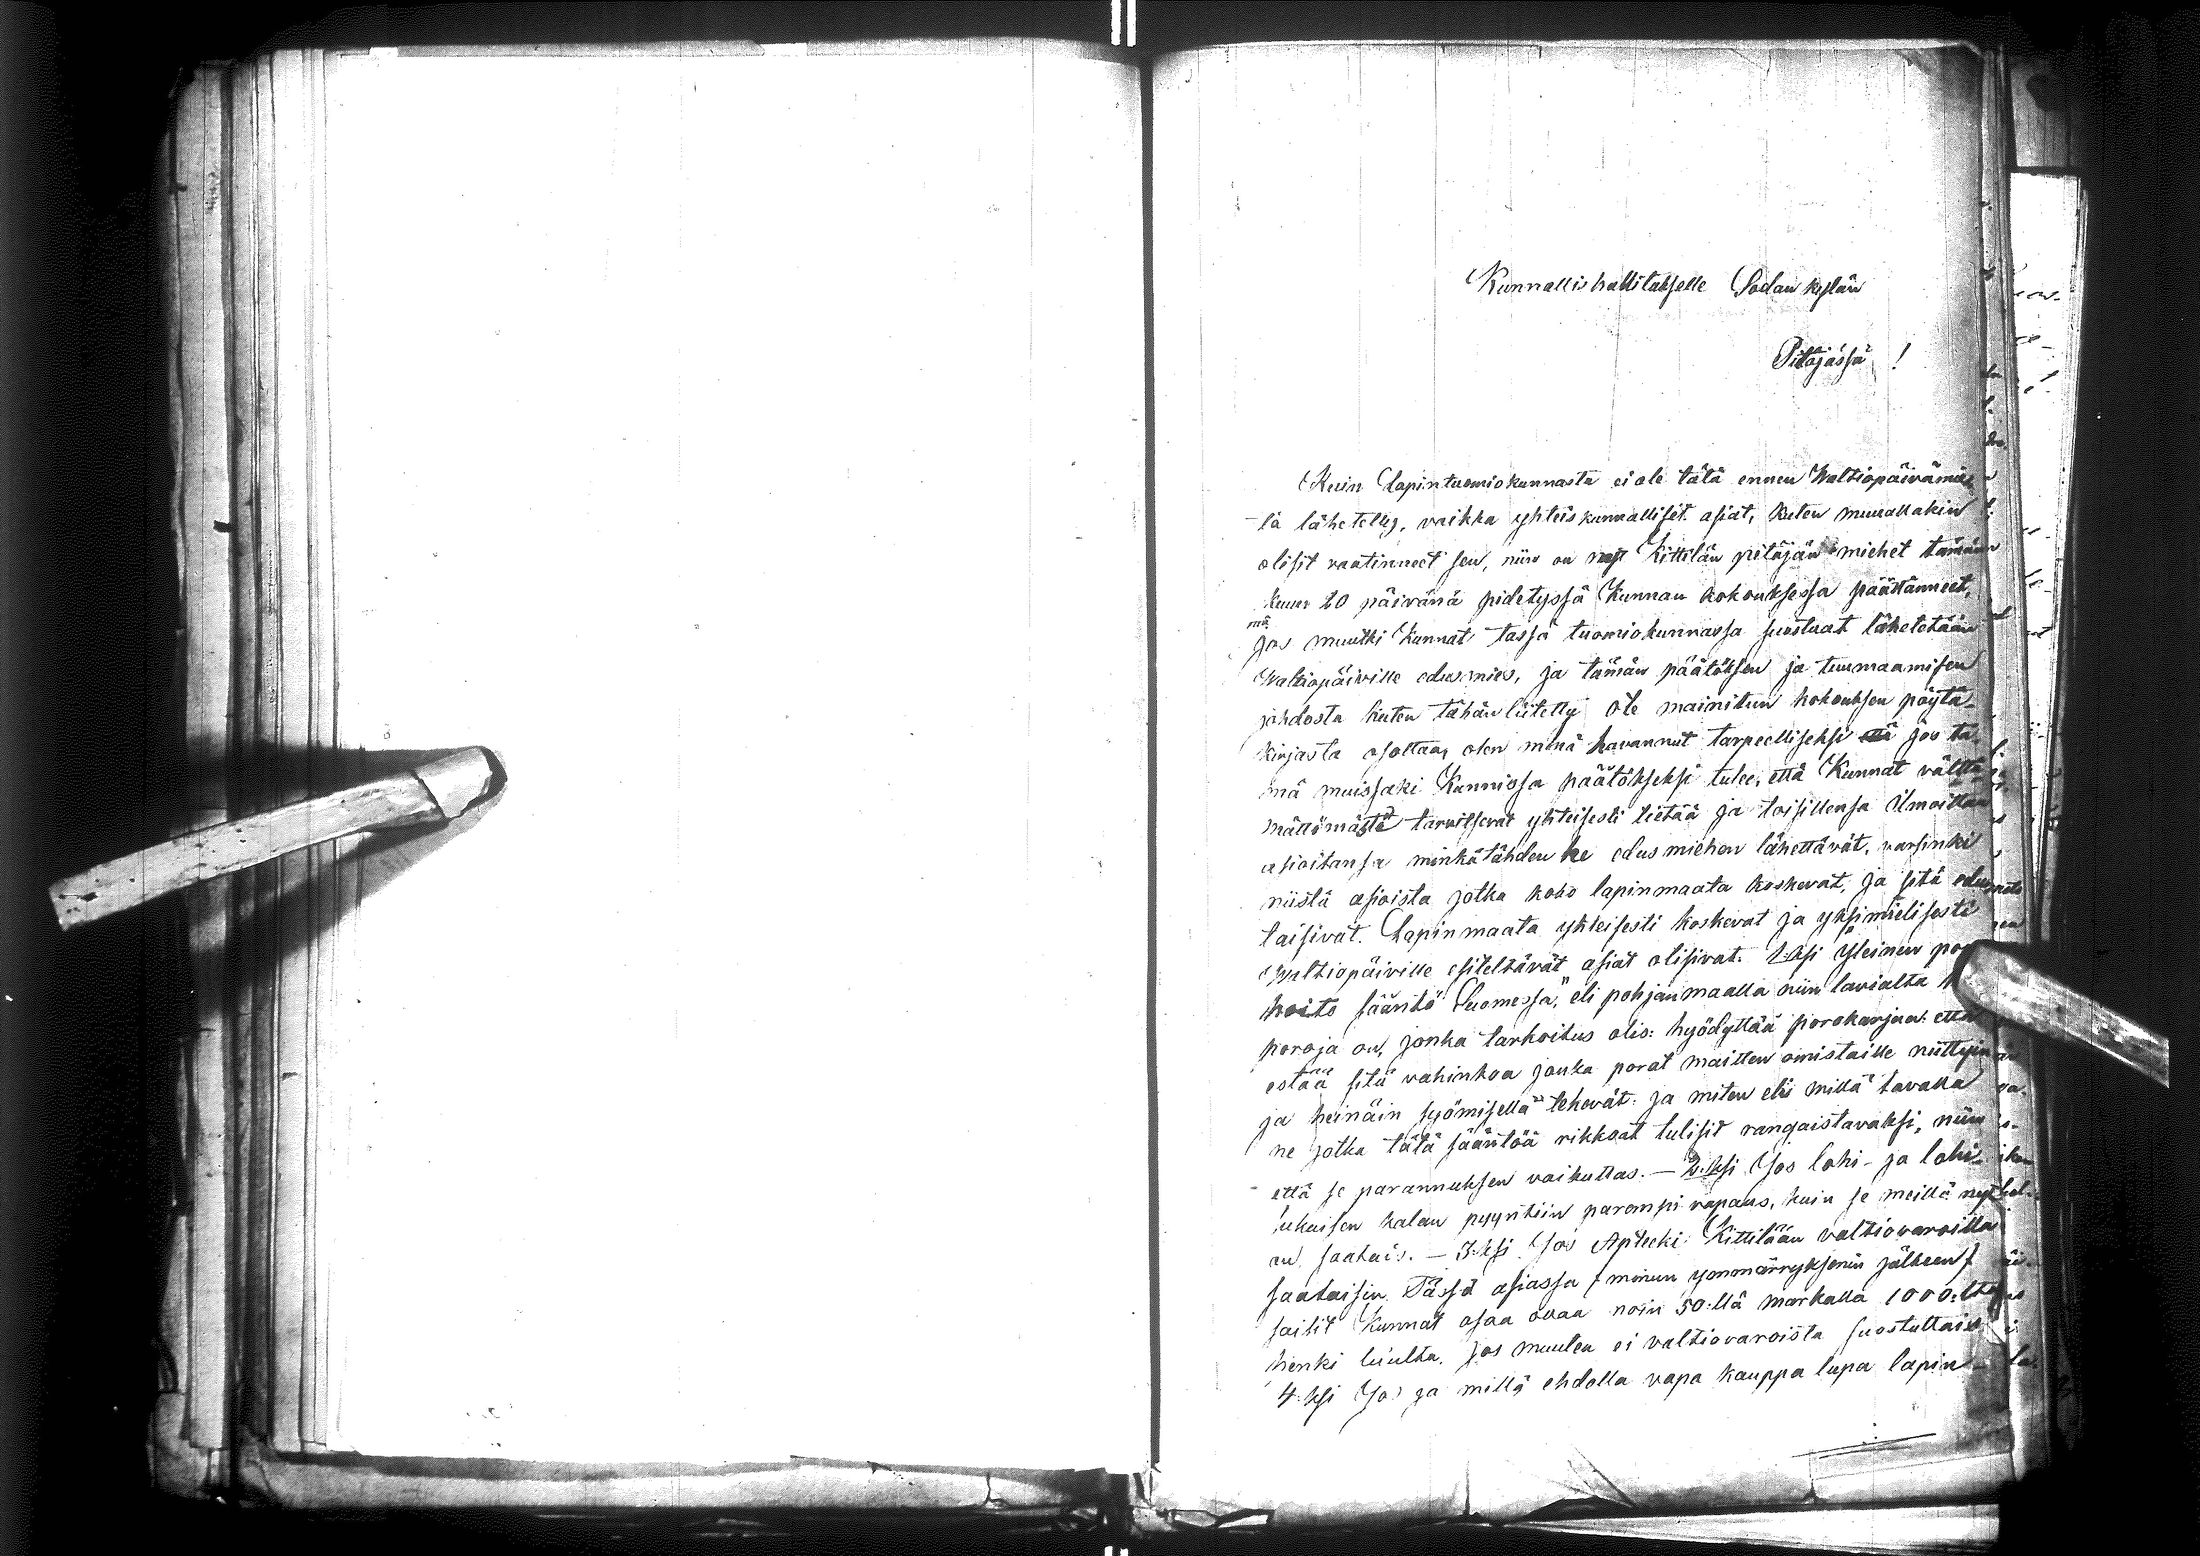 Kunnallishallitukselle Sodankylän
Pitäjässä !
Kuin Lapintuomiokunnasta ei ole tätä ennen Waltiopäivämies
-tä lähetetty, vaikka yhteiskunnalliset asiat, kuten muuallakin
olisit vaatinneet sen, niin on nyt Kittilän pitäjän miehet tämän
kuun 20 päivänä pidetyssä Kunnan kokouksessa päättänneet,
jos muutki Kunnat tässä tuomiokunnassa suostuat lähetetään
Waltiopäiville edusmies, ja tämän päätöksen ja tuumaamisen
johdosta kuten tähän liitetty Ote mainitun kokouksen pöytä-
kirjasta osottaa, olen minä havannut tarpeelliseksi että jos tä-
mä muissaki Kunnissa päätökseksi tulee, että Kunnat vältt
mättömästä tarvitsevat yhteisesti tietää ja toisillensa ilmoittaa
asioitansa minkätähden he edusmiehen lähettävät, varsinki
niistä asioista jotka koko lapinmaata koskevat, ja sitä edus
taisivat. Lapinmaata yhteisesti koskevat ja yksimielisesti
Waltiopäiville esiteltävät asiat olisivat. 1:ksi Yleinen por
hoito sääntö Suomessa," eli pohjanmaalla niin lavialta
poroja on, jonka tarkoitus olis: hyödyttää porokarjaa: että
estää sitä vahinkoa jonka porat maitten omistaille niittyin
ja heinäin syömisellä tehevät: ja miten elii millä tavalla
ne jotka tätä sääntöä rikkoat tulisit rangaistavaksi, niin
että se parannuksen vaikuttas. — 2:ksi Jos lohi- ja lohi-
lukuisen kalan pyyntiin parempi vapaus, kuin se meillä nyt
on saatais. — 3:ksi Jos Apteeki Kittilään valtiovaroilla
saataisiin. Tässä asiassa / minun ymmärrykseniu jälkeen /
saisit Kunnat osaa ottaa noin 50:llä markalla 1000:lta
henki luulta. jos muuten ei valtiovaroista suostuttais
4:ksi Jos ja millä ehdolla vapa kauppa lupa lapin-